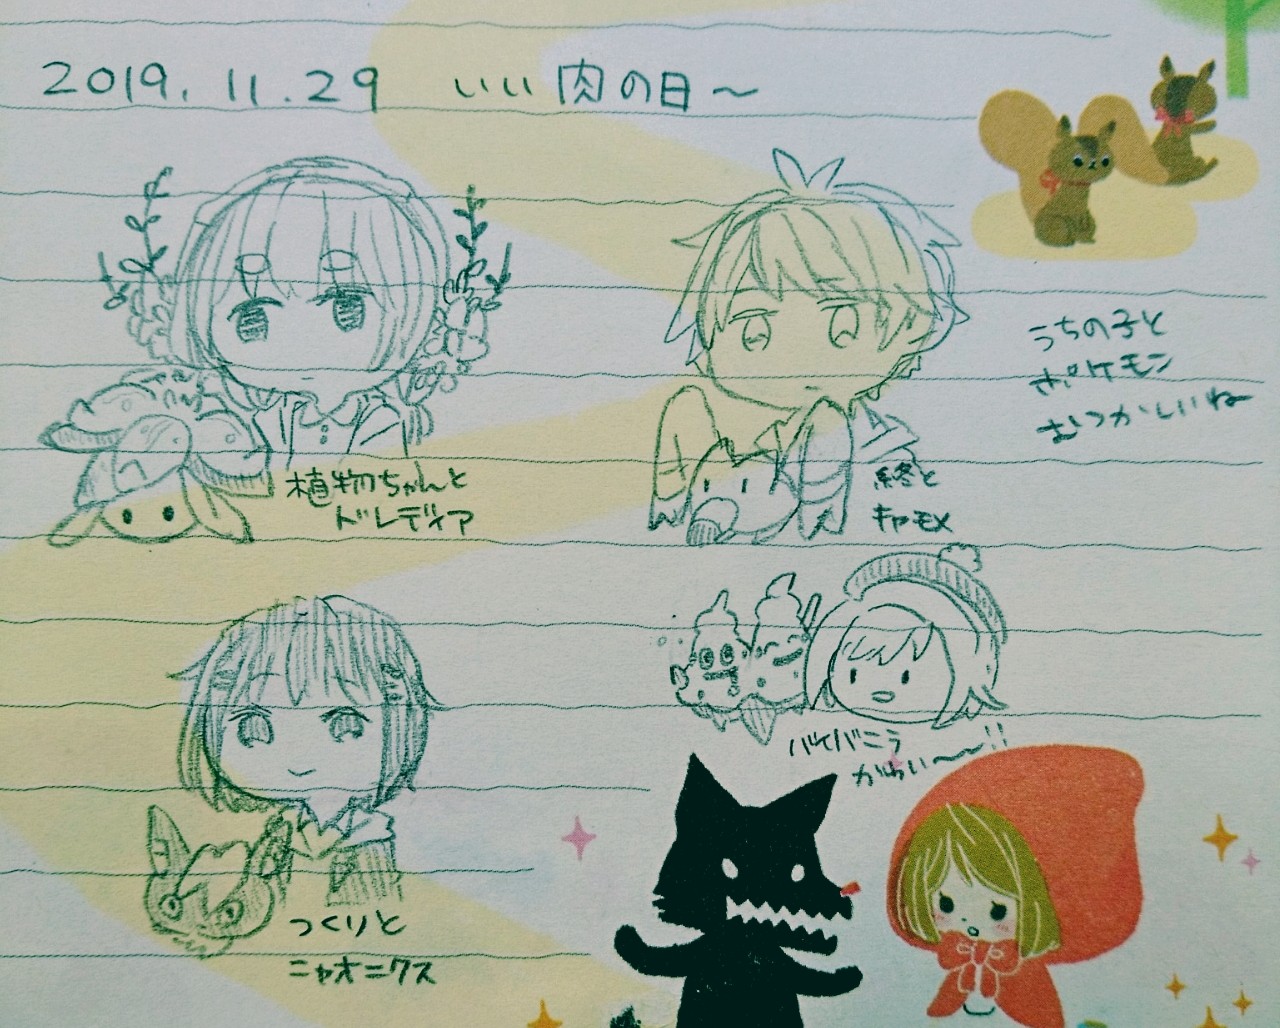 2019.11.29 いい肉の日～
うちの子と
ポケモン
むつかしいね
植物ちゃんと
ドレディア
終と
キャモメ
バイバニラ
かわいい～～!!
つくりと
ニャオニクス